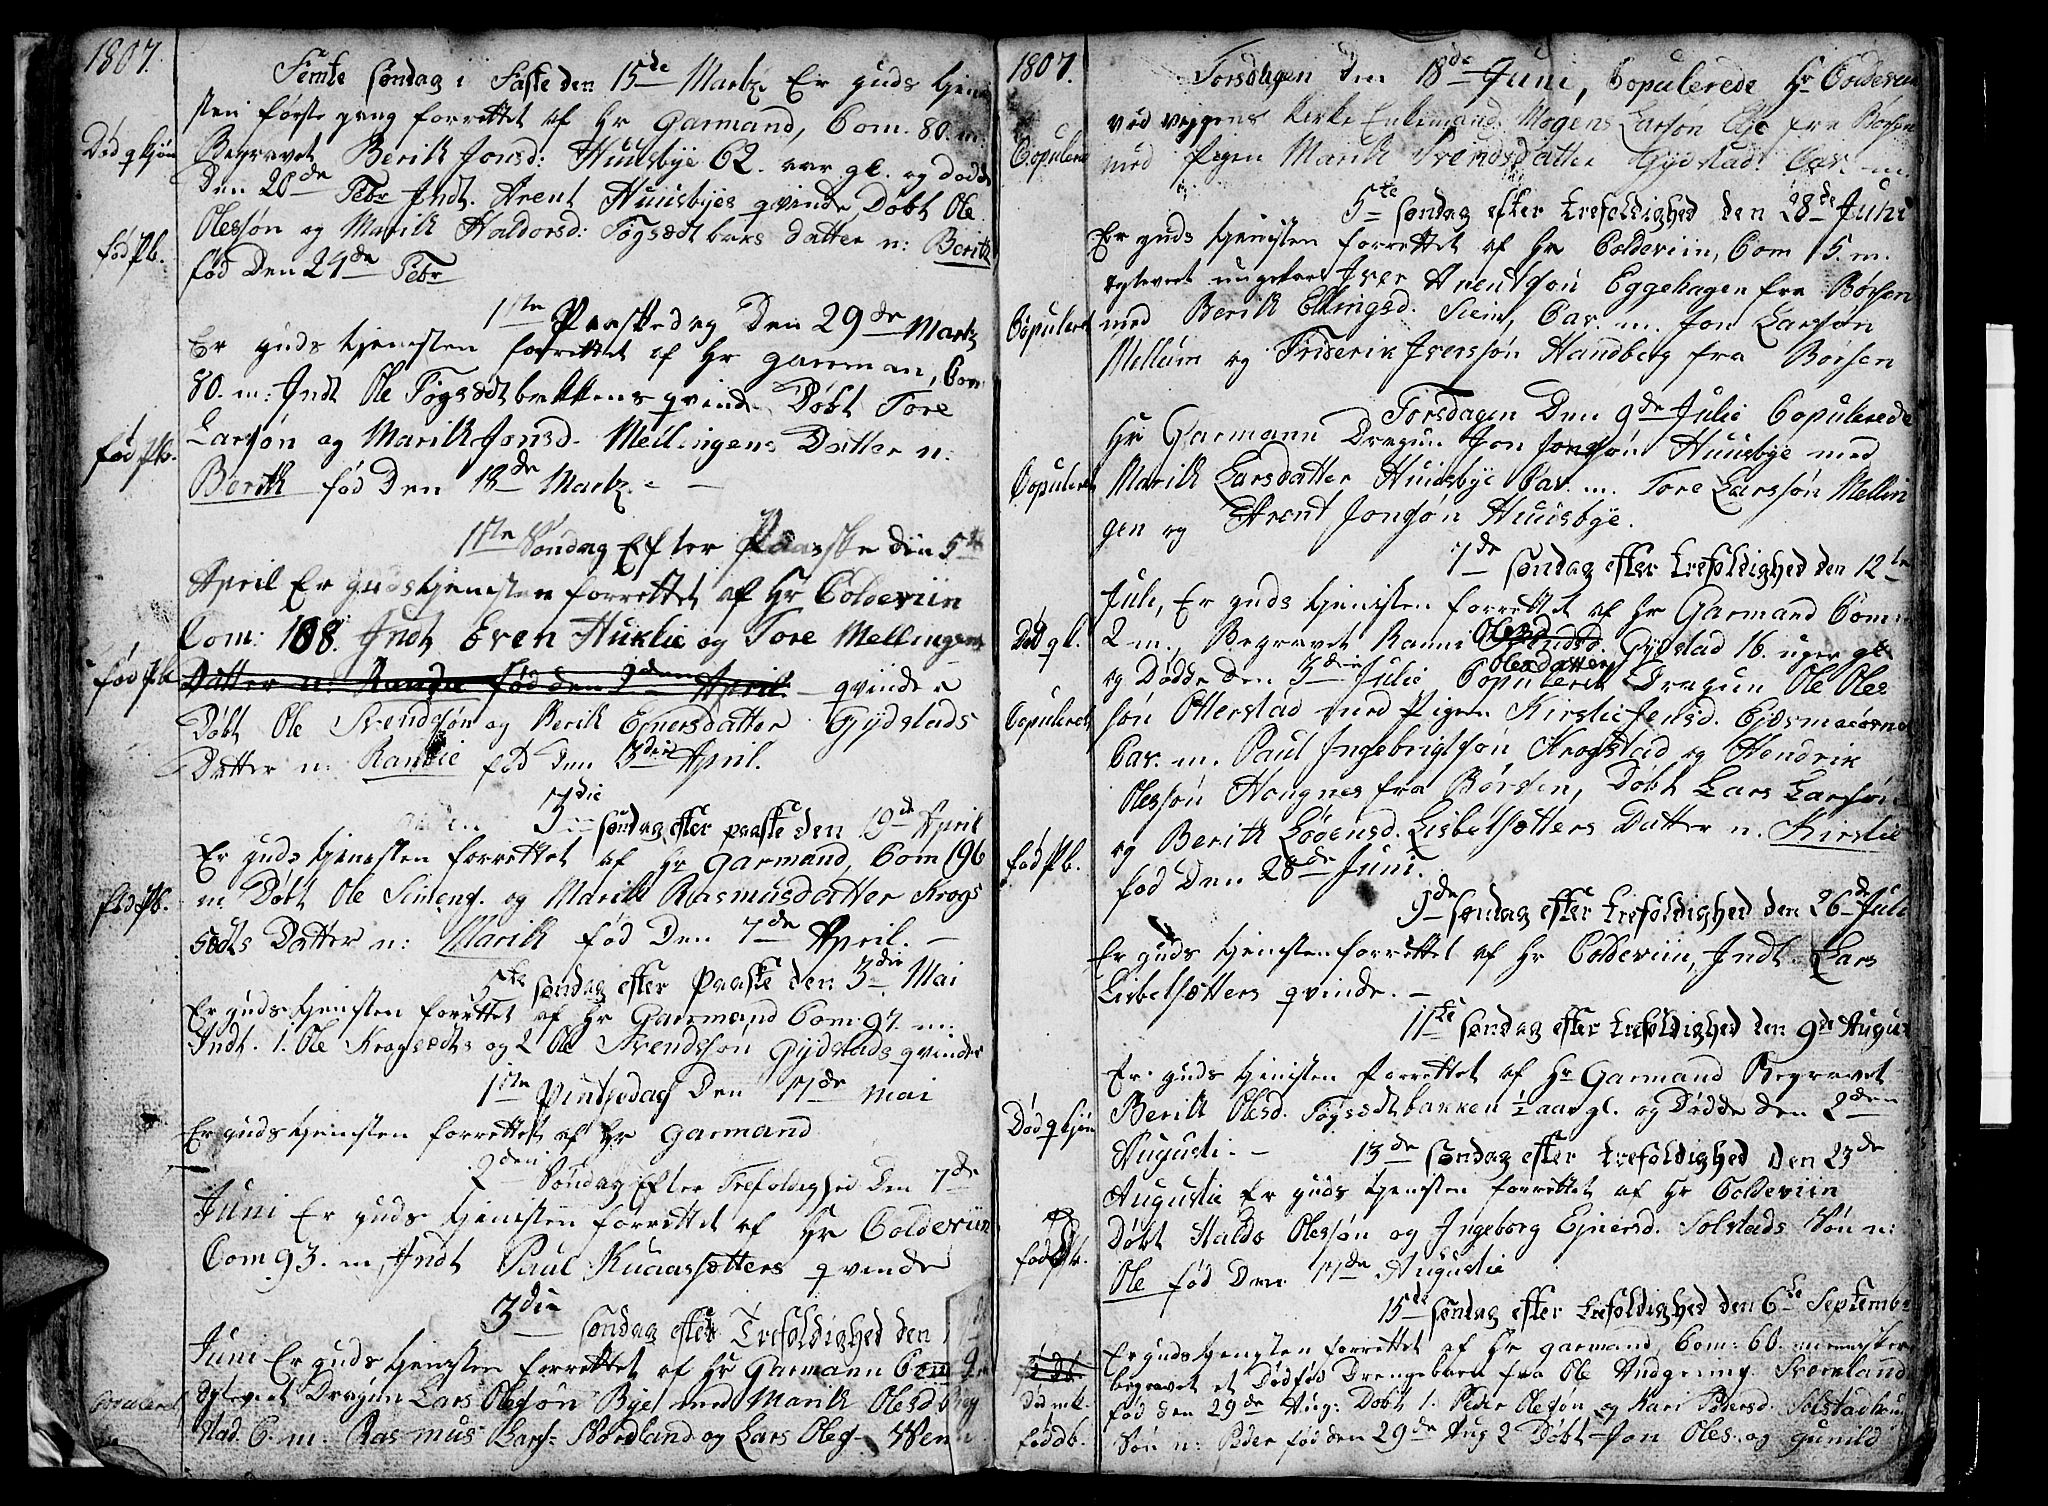 1807.
Femte søndag i Faste den 15de Martz. Er guds tjene
sten første gang forrettet af Hr Garmand, Com. 80. m.
Død qkjøn
Begravet Berik Jonsd: Huusbye 62. aar gl. og dødde
den 28de Febr Indt. Arent Huusbyes qvinde, Døbt Ole
Olessøn og Marik Haldorsd: Fogsædtbaks datter n: Berith
fød Pb.
fød Den 24de Febr
1ste Paaskedag Den 29de Martz
Er guds tjenesten forrettet af Hr Garman, Com
80. m: Indt Ole Fogsædtbakkens qvinde, Døbt Tore
Larssøn og Marik Jonsd. Mellingens Datter n:
fød Pb.
Berith fød Den 18de Martz. - -
1ste Søndag Efter Paaske den 5te
April Er guds tjenesten forrettet af Hr Coldeviin
Com: 108. Indt. Even Huklie og Tore Mellingens
fød Pb
Datter n: Randie fød den 3den April - qvinder
Døbt Ole Svendssøn og Berik Ejnersdatter Gydstads
Datter n: Randie fød Den 3die April.
3die søndag efter paaske den 19de April
Er guds tjenesten forrettet af Hr Garmand, Com 196
m. Døbt Ole Simens. og Marik Rasmusdatter Krogs
fød Pb.
sædts Datter n: Marik fød Den 7de April. -
5te søndag efter Paaske den 3die Mai
Er guds tjenisten forrettet af Hr Garmand Com. 97. m:
Indt. 1. Ole Krogsædts og 2 Ole Svendssøn Gydstads qvinder
1ste Pintsedag Den 17de Mai
Er guds tjenisten forrettet af Hr Garmand
2den Søndag Efter Trefoldighed Den 7de
Juni Er guds tjenisten forrettet af Hr Coldeviin
Com 93. m, Indt Paul Kuaassætters qvinde
3die søndag efter Trefoldighed den
Juni Er guds tjenesten forrettet af Hr Garmann Com
Copuleret
Dragun Lars Olessøn Bye, med Marik Olesd
stad. C. m: Rasmus Lars. Nordland og Lars Oles-
1807.
Torsdagen den 18de Juni, Copulerede Hr Coldeviin
ved viggens kirke Enkemand Mogens Larsøn Lye fra Børsen
Copuleret
med Pigen Marik Svendsdatter Gydstad. Cav. m.
5te søndag efter trefoldighed den 28de Juni
Er guds tjenisten forrettet af Hr Coldeviin, Com 15. m.
ungekarl Iver Arentsøn Eggehagen fra Børsen
Copuleret
med Berik Ellingsd. Stein, Cav. m. Jon Larsøn
Mellum og Friderik Iverssøn Handberg fra Børsen
Torsdagen Den 9de Julie Copulerede
Hr Garmann Dragun Jon Jonssøn Huusbye med
Copuleret
Marik Larsdatter Huusbye Cav. m. Tore Larssøn Mellin
gen og Arent Jonsøn Huusbye.
7de søndag efter trefoldighed den 12te
Juli, Er guds tjenisten forrettet af Hr Garmand Com
Død gl.
2 m., Begravet Ranni Olesd Gydstad 16. uger gl.
Olesdatter
og Dødde Den 3die Julie Copuleret Dragun Ole Oles
Copuleret
søn Otterstad med Pigen Kirstie Jensd.
Cav. m. Paul Ingebrigtsøn Krogstad og Hendrik
Olessøn Hougnes fra Børsen, Døbt Lars Larsøn
og Berith Lødensd. Lisbetsætters Datter n. Kirstie
fød Pb.
fød Den 28de Juni.
9de søndag efter trefoldighed den 26de Juli
Er guds tjenisten forrettet af Hr Coldeviin, Indt. Lars
Lisbetsætters qvinde. -
11te søndag efter trefoldighed den 9de August
Er guds tjenisten forrettet af Hr Garmand Begravet
Død qkjøn
Berik Olesd. Fogsædtbakken ½ aar gl. og Dødde den 2den
Augusti. - 13de søndag efter trefoldighed den 23de
Augustie Er guds tjenisten forrettet af Hr Coldeviin
Døbt Haldo Olessøn og Ingeborg Ejnersd. Solstads Søn n:
Ole fød Den 17de Augustie
15de søndag efter trefoldighed den 6te Septembr
Er guds tjenisten forrettet af Hr Garmand, Com: 60. mennesker
begravet et Dødfød Drengebarn fra Ole
Død mk.
fød den 29de Aug: Døbt 1. Peder Olessøn og Kari Pedersd.
fød Db.
Søn n: Peder fød den 29de Aug 2 Døbt Jon Oles. og Gunild